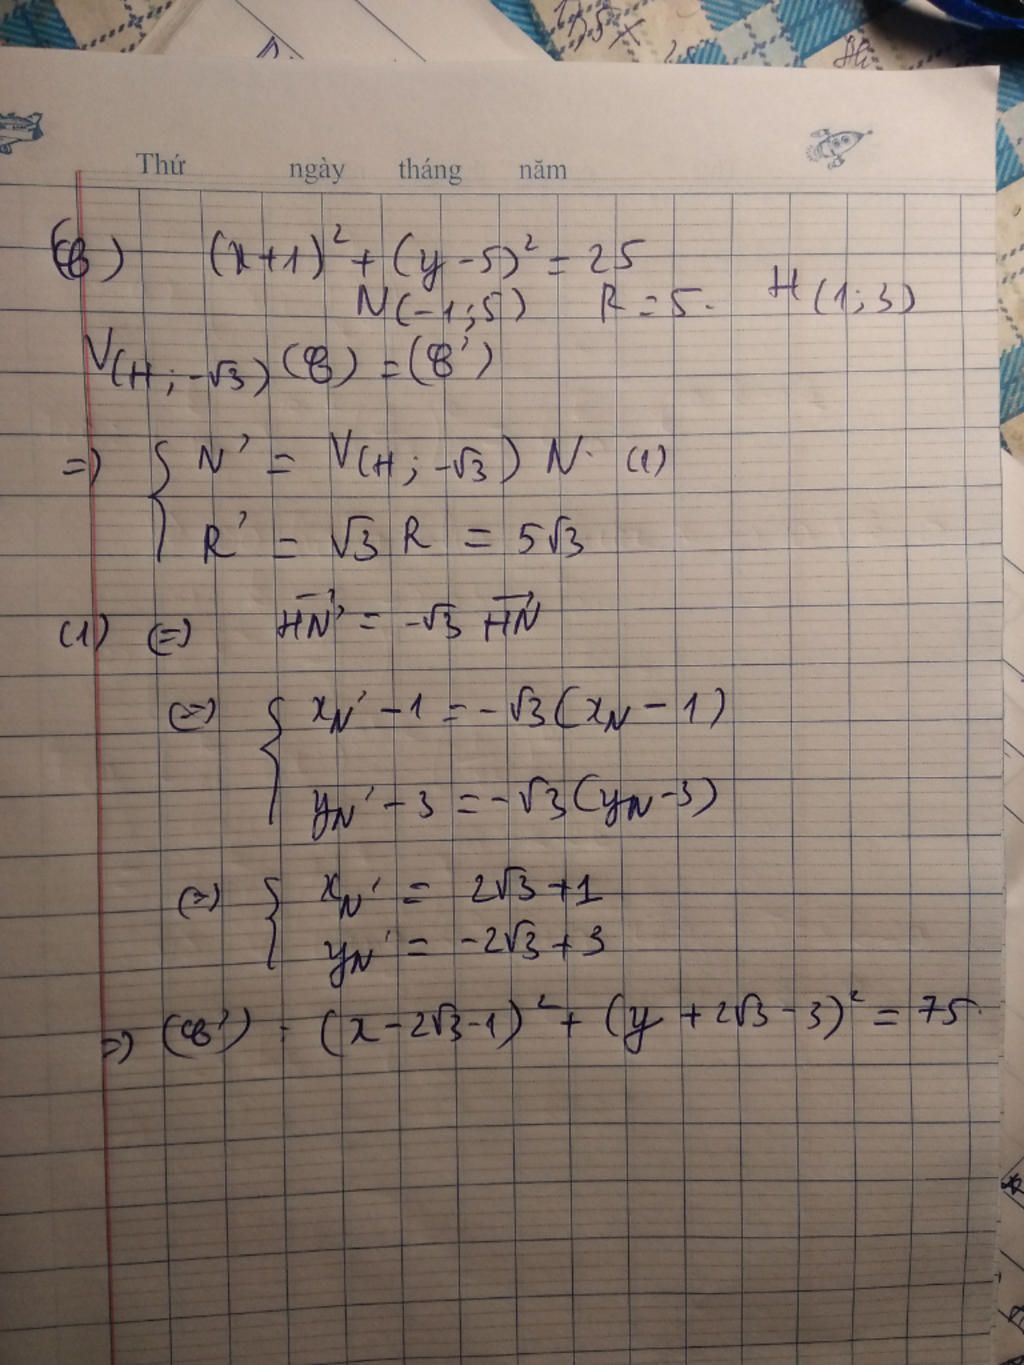 Thứ ngày tháng năm
(C) (x+1)² + (y-5)² = 25
N(-1;5) R = 5. H(1;3)
V(H;-√3) (C) = (C')
=> { N' = V(H;-√3) N. (1)
R' = √3 R = 5√3
(1) (=) HN' = -√3 HN
(=) { xN' - 1 = -√3(xN - 1)
yN' - 3 = -√3(yN - 3)
(=) { xN' = 2√3 + 1
yN' = -2√3 + 3
=> (C') : (x - 2√3 - 1)² + (y + 2√3 - 3)² = 75.